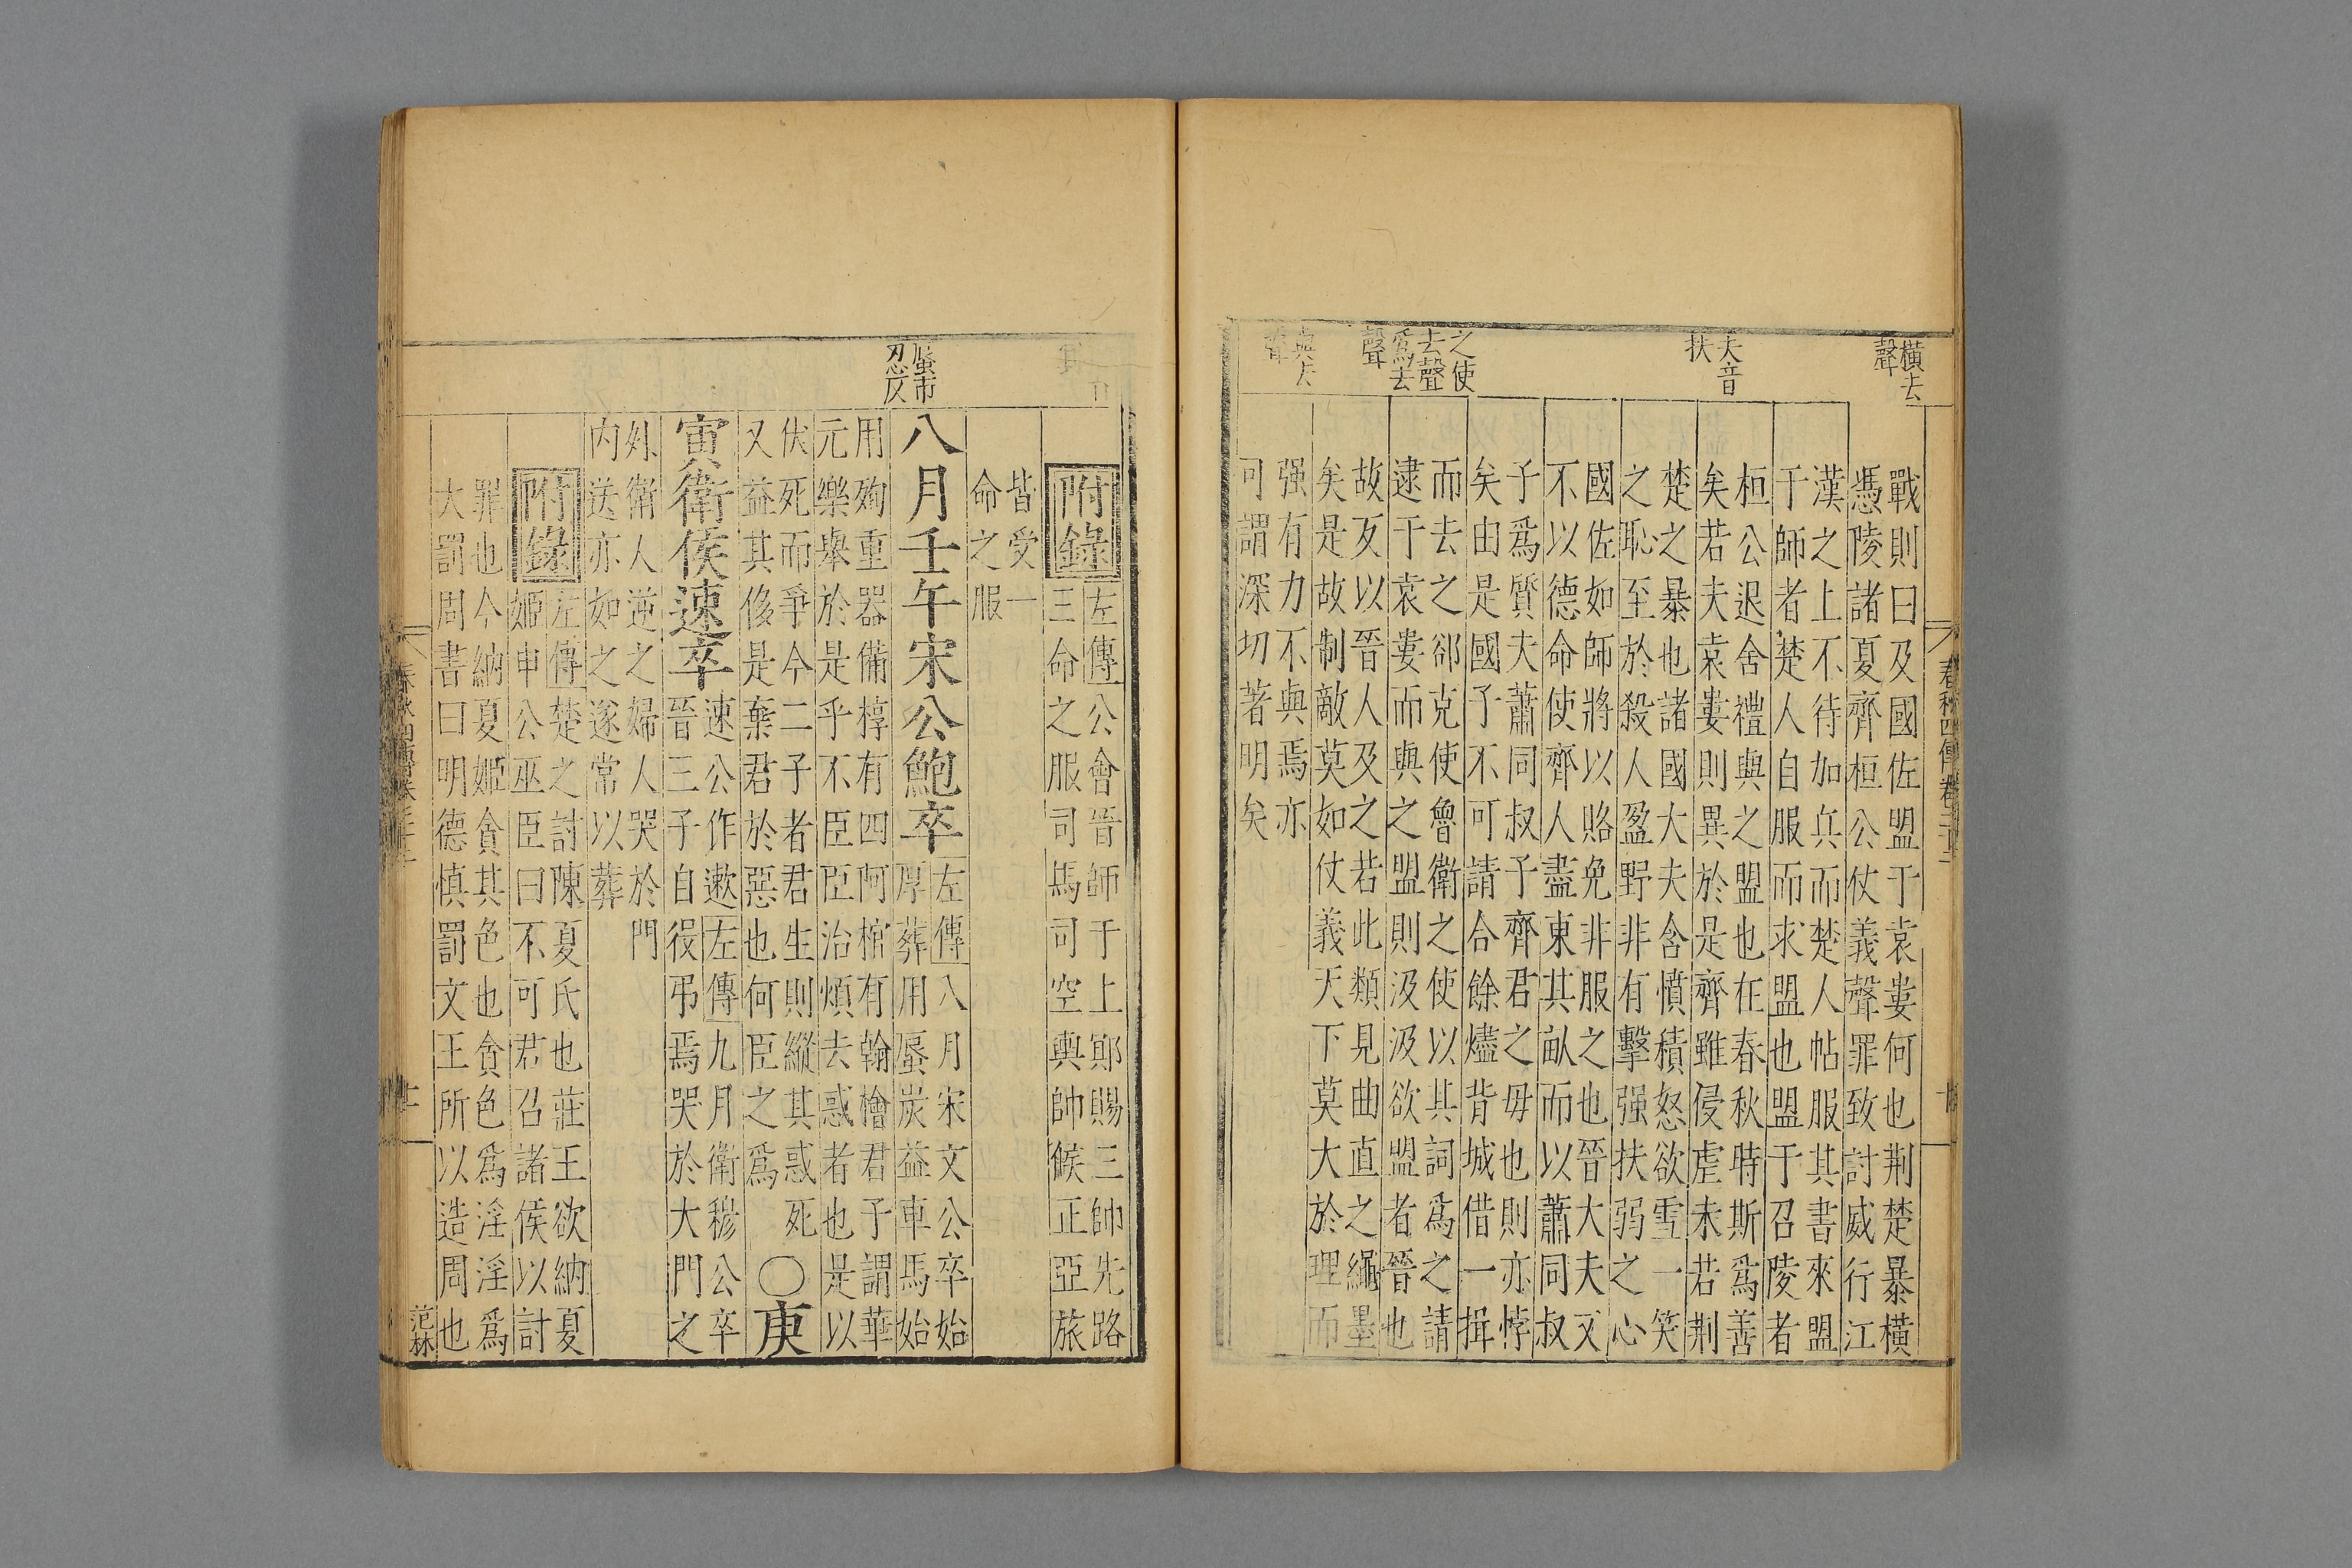 橫去
聲
夫音
扶
之使
去聲
爲去
聲
與去
聲
戰則曰及國佐盟于袁婁何也荆楚暴橫
憑陵諸夏齊桓公仗義聲罪致討威行江
漢之上不待加兵而楚人帖服其書來盟
于師者楚人自服而求盟也盟于召陵者
桓公退舍禮與之盟也在春秋時斯爲善
矣若夫袁婁則異於是齊雖侵虐未若荆
楚之暴也諸國大夫含憤積怒欲雪一笑
之恥至於殺人盈野非有擊强扶弱之心
國佐如師將以賂免非服之也晉大夫又
不以德命使齊人盡東其畝而以蕭同叔
子爲質夫蕭同叔子齊君之毋也則亦悖
矣由是國子不可請合餘燼背城借一揖
而去之郤克使魯衛之使以其詞爲之請
逮于袁婁而與之盟則汲汲欲盟者晉也
故反以晉人及之若此類見曲直之繩墨
矣是故制敵莫如仗義天下莫大於理而
强有力不與焉亦
可謂深切著明矣
春秋四傳卷二十
蜃市
忍反
附錄
左傳公會晉師于上鄍賜三帥先路
三命之服司馬司空輿帥候正亞旅
皆受一
命之服
八月壬午宋公鮑卒
左傳八月宋文公卒始
厚葬用蜃炭益車馬始
用殉重器備椁有四阿棺有翰檜君子謂華
元樂舉於是乎不臣臣治煩去惑者也是以
伏死而爭今二子者君生則縱其惑死
又益其侈是棄君於惡也何臣之爲
〇庚
寅衛侯速卒
速公作遬左傳九月衛穆公卒
晉三子自役弔焉哭於大門之
外衛人逆之婦人哭於門
内送亦如之遂常以葬
附錄
左傳楚之討陳夏氏也莊王欲納夏
姬申公巫臣曰不可君召諸侯以討
罪也今納夏姬貪其色也貪色爲淫淫爲
大罰周書曰明德慎罰文王所以造周也
范林